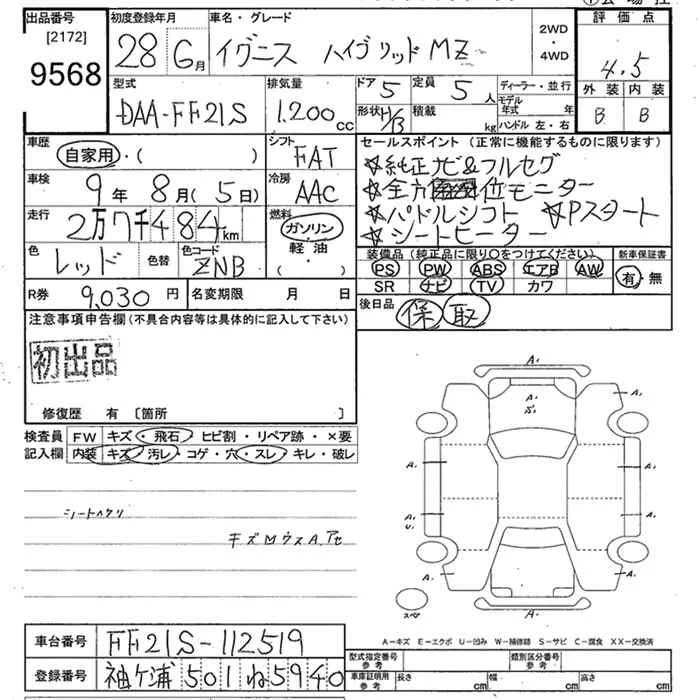 出品番号
[2172]
9568
初度登録年月
28 6月
車名・グレード
イグニス ハイブリッド MZ
2WD
・
4WD
評価点
4.5
外装 内装
B B
型式
DAA-FF21S
排気量
1.200cc
ドア 5
定員 5人
形状 H/B
積載 kg
ディーラー・並行
モデル年式 年
ハンドル 左・右
車歴
自家用・( )
シフト
FAT
車検
9年 8月(5日)
冷房
AAC
走行
2万7千484km
燃料
ガソリン
軽・油
( ・ )
色
レッド
色替
色コード
ZNB
R券 9,030円
名変期限 月 日
セールスポイント(正常に機能するものに限ります)
☆純正ナビ&フルセグ
☆全方位モニター
☆パドルシフト ☆Pスタート
☆シートヒーター
装備品(純正品に限り○をつけてください)
新車保証書
PS PW ABS エアB AW
有・無
SR ナビ TV カワ
後日品
保 取
注意事項申告欄(不具合内容等は具体的に記入して下さい)
初出品
修復歴 有 〔箇所 〕
検査員 FW キズ・飛石・ヒビ割・リペア跡・×要
記入欄 内装 キズ・汚レ・コゲ・穴・スレ・キレ・破レ
シートヘタリ
キズMウスA.アセ
A
A
A
A
A
A
A
A
U
A
A
A
スペア
A-キズ E-エクボ U-凹み W-補修跡 S-サビ C-腐食 XX-交換済
車台番号 FF21S-112519
登録番号 袖ケ浦 501 ね5940
型式指定番号
参考
類別区分番号
参考
車庫証明用
参考
長さ cm
幅 cm
高さ cm